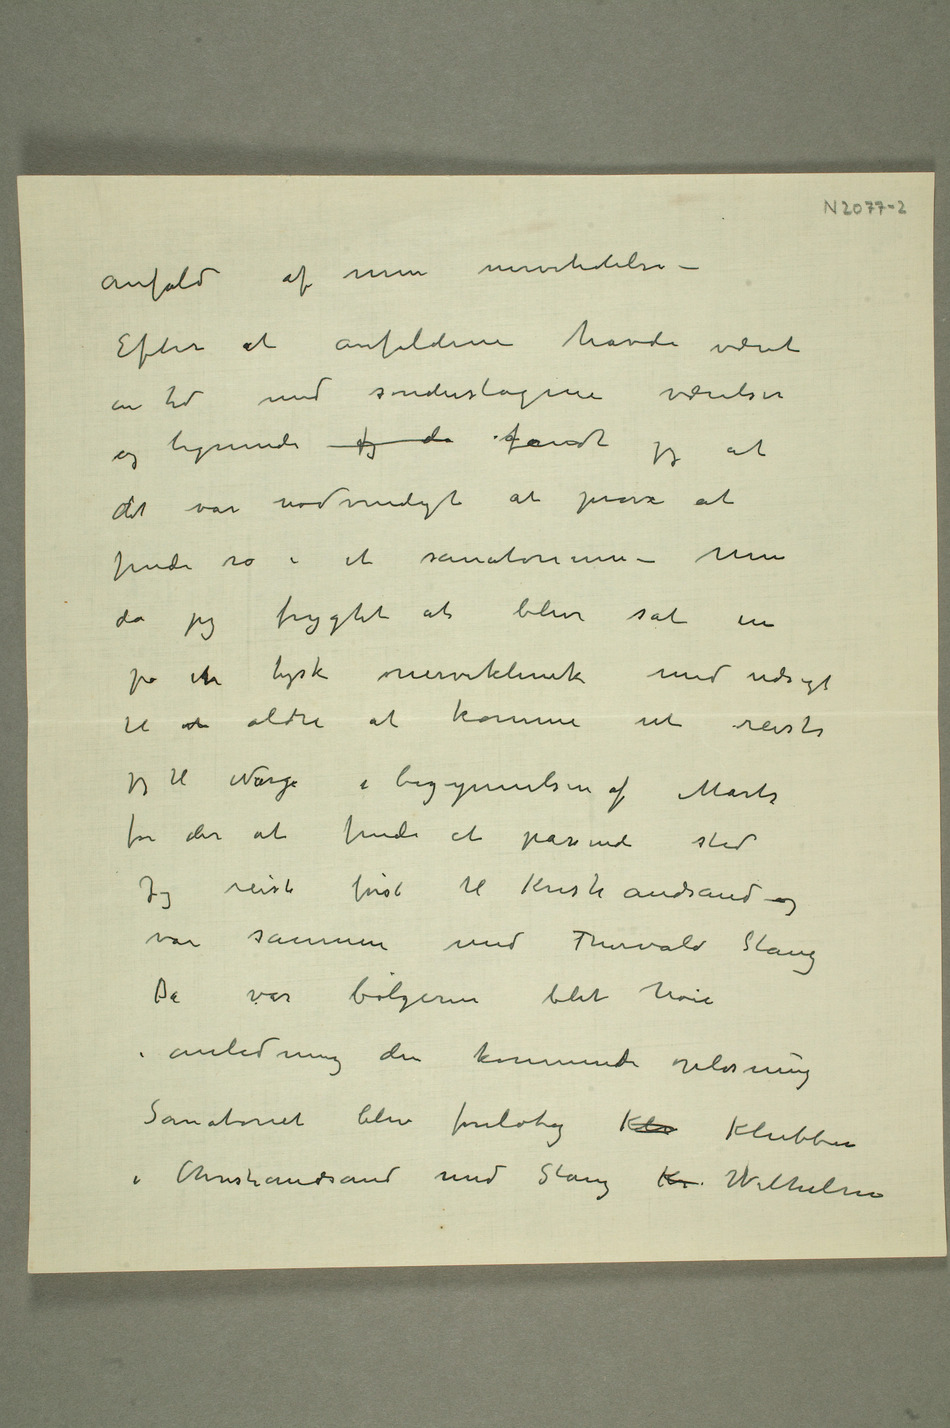 N 2077-2
anfald af min nervelidelse –
Efter at anfaldene havde været
en tid med sønderslagne værelser
og lignende jeg da fandt jeg at
det var nødvendigt at prøve at
finde ro i et sanatorium – Men
da jeg frygtet at blive sat in
på en tysk nerveklinik med udsigt
til at aldre at komme ut reiste
jeg til Norge i begyynnelsen af Marts
for der at finde et passende sted
Jeg reiste først til Kristiandsand og
var sammen med Thorvald Stang
Da var bølgerne blet høie
i anledning den kommende opløsning
Sanatoriet blev foreløbig Klu Klubben
i Christiandsand med Stang Kr. Wilhelm